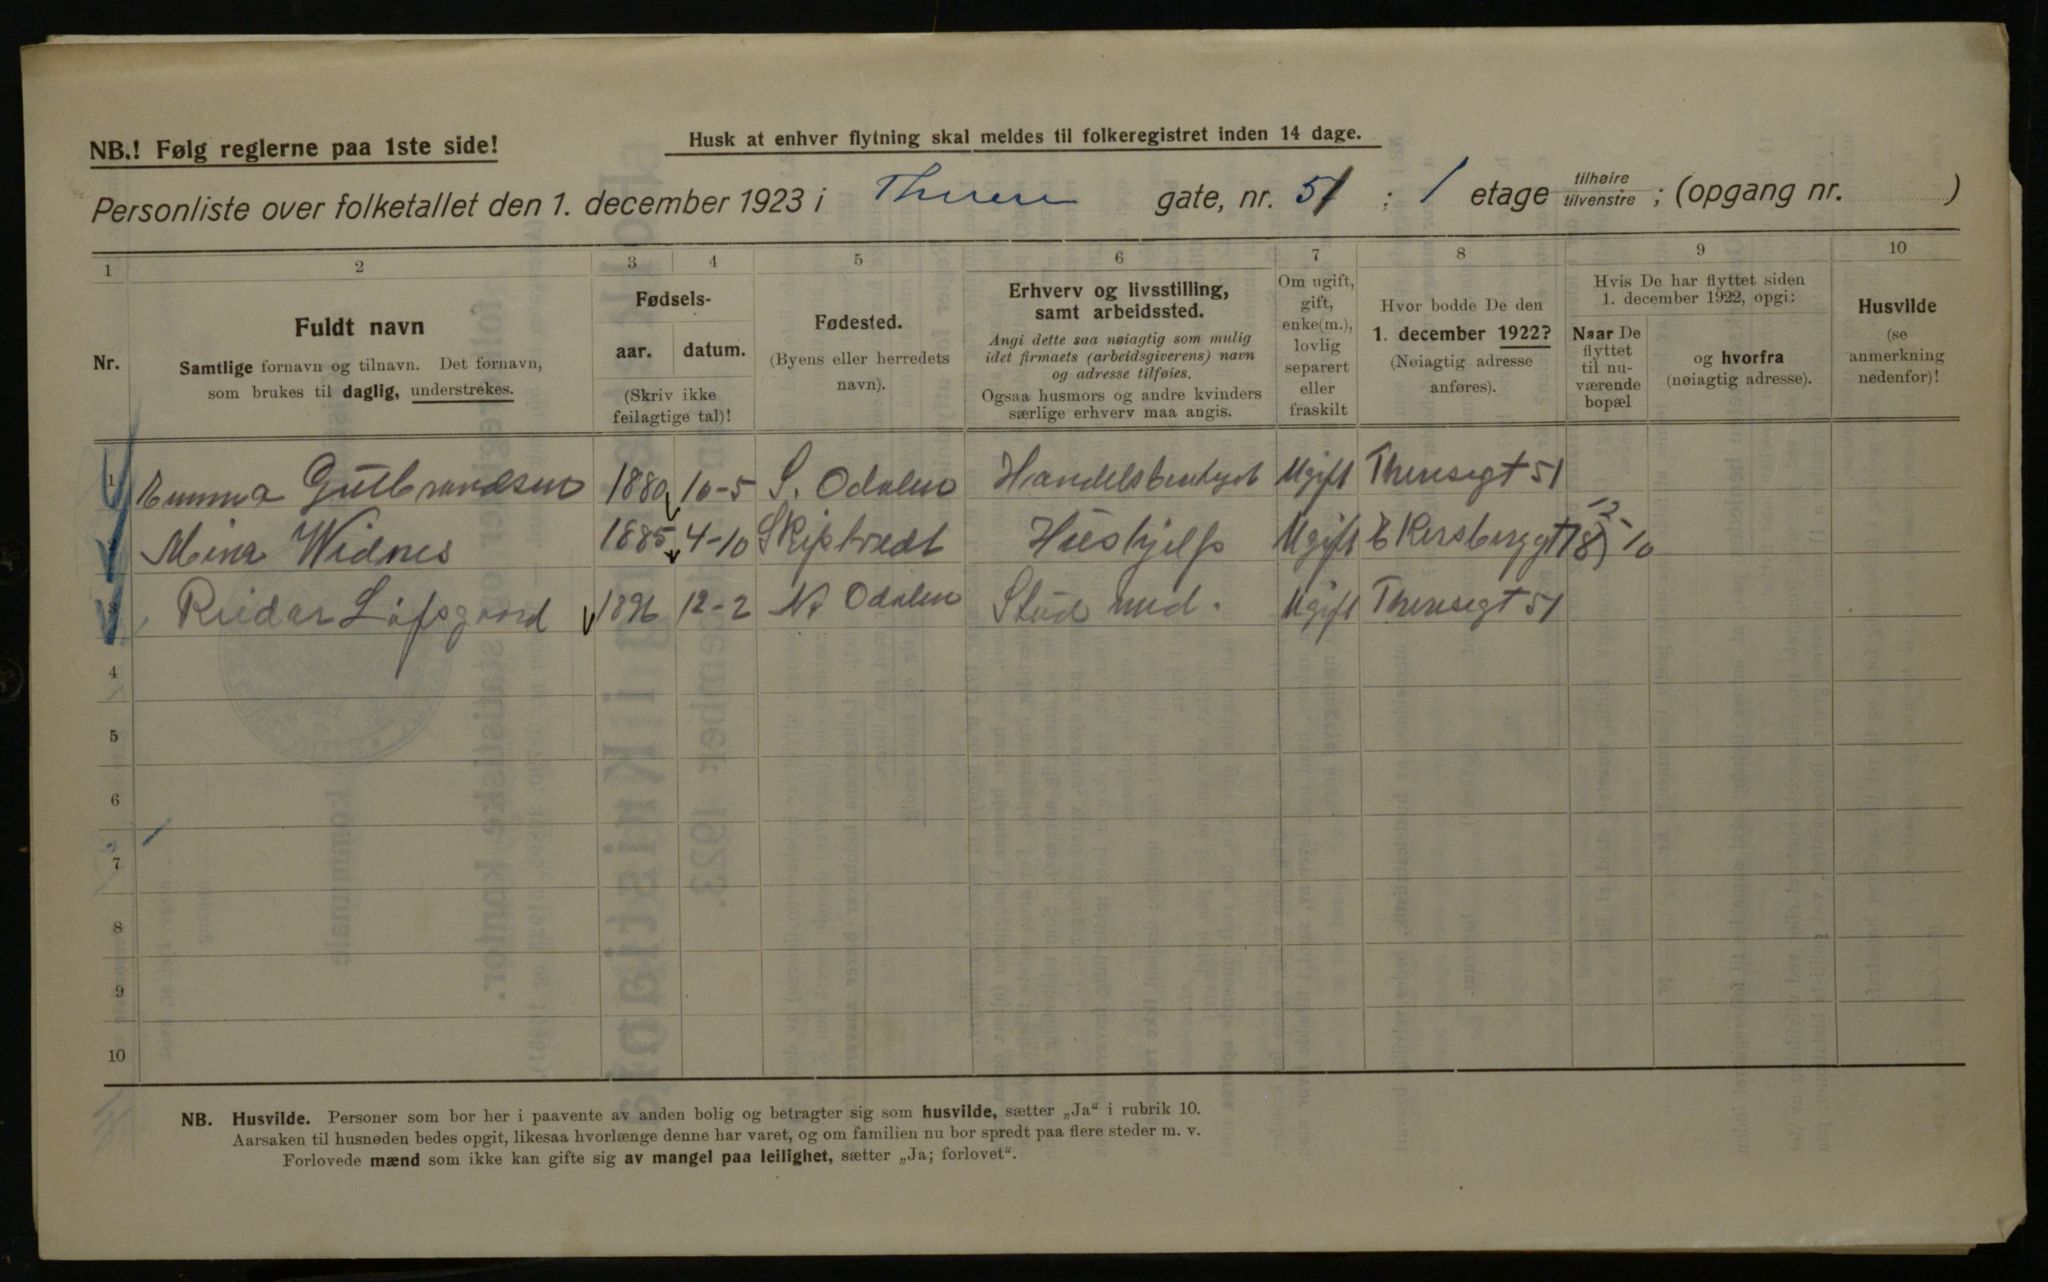 NB.! Følg reglerne paa 1ste side!
Husk at enhver flytning skal meldes til folkeregistret inden 14 dage.
Personliste over folketallet den 1. december 1923 i Therese gate, nr. 51 ; 1 etage tilhøire tilvenstre ; (opgang nr. )
1 2 3 4 5 6 7 8 9 10
Nr.
Fuldt navn
Samtlige fornavn og tilnavn. Det fornavn,
som brukes til daglig, understrekes.
Fødsels-
aar. datum.
(Skriv ikke
feilagtige tal)!
Fødested.
(Byens eller herredets
navn).
Erhverv og livsstilling,
samt arbeidssted.
Angi dette saa nøiagtig som mulig
idet firmaets (arbeidsgiverens) navn
og adresse tilføies.
Ogsaa husmors og andre kvinders
særlige erhverv maa angis.
Om ugift,
gift,
enke(m.),
lovlig
separert
eller
fraskilt
Hvor bodde De den
1. december 1922?
(Nøiagtig adresse
anføres).
Hvis De har flyttet siden
1. december 1922, opgi:
Naar De
flyttet
til nu-
værende
bopæl
og hvorfra
(nøiagtig adresse).
Husvilde
(se
anmerkning
nedenfor)!
1 Emma Gulbrandsen 1880 10-5 S. Odalen Handelsbestyrt Ugift Theresegt 51
2 Mina Widnes 1885 4-10 Skiptvedt Hushjelp Ugift Ekersberggt 10
3 Reidar Løfsgaard 1896 12-2 N Odalen Stud med. Ugift Theresegt 51
4
5
6
7
8
9
10
NB. Husvilde. Personer som bor her i paavente av anden bolig og betragter sig som husvilde, sætter „Ja“ i rubrik 10.
Aarsaken til husnøden bedes opgit, likesaa hvorlænge denne har varet, og om familien nu bor spredt paa flere steder m. v.
Forlovede mænd som ikke kan gifte sig av mangel paa leilighet, sætter „Ja; forlovet“.